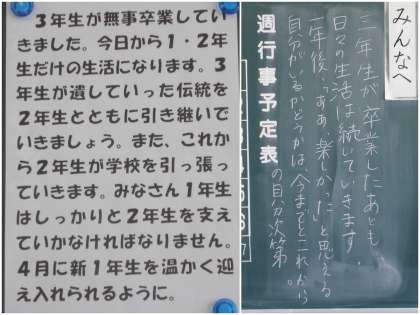 ３年生が無事卒業してい
きました。今日から１・２年
生だけの生活になります。３
年生が遺していった伝統を
２年生とともに引き継いで
いきましょう。また、これか
ら２年生が学校を引っ張っ
ていきます。みなさん１年生
はしっかりと２年生を支え
ていかなければなりません。
４月に新１年生を温かく迎
え入れられるように。
みんなへ
三年生が卒業したあとも
日々の生活は続いていきます。
一年後、「ああ、楽しかった」と思える
自分がいるかどうかは今までとこれから
の自分次第。
週行事予定表